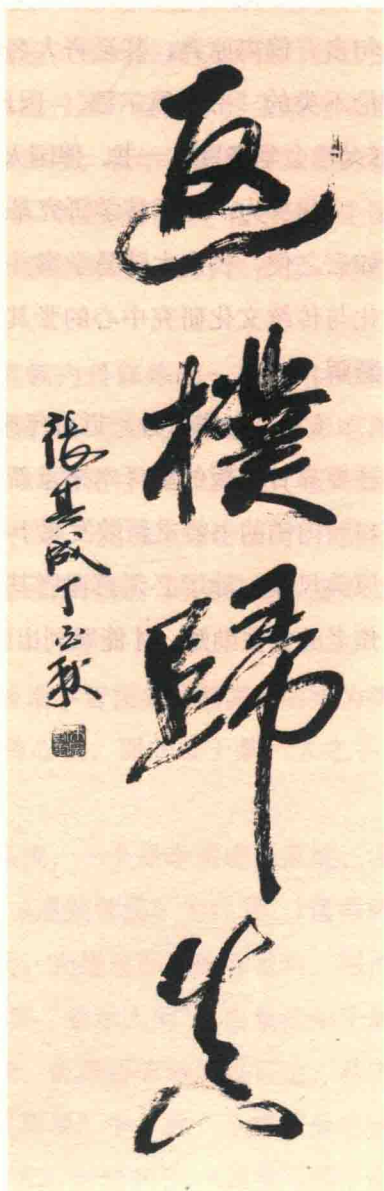 返樸歸真
張其成丁亥秋